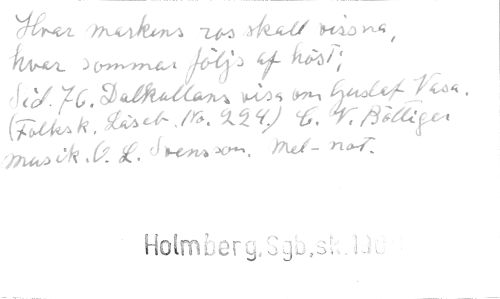 Hvar markens ros skall vissna,
hvar sommar följs af höst;
Sid. 76. Dalkullans visa om Gustaf Vasa.
(Folksk. Läseb. No. 224.) C. V. Böttiger
musik. O. L. Svensson. Mel-not.
Holmberg, Sgb, sk.